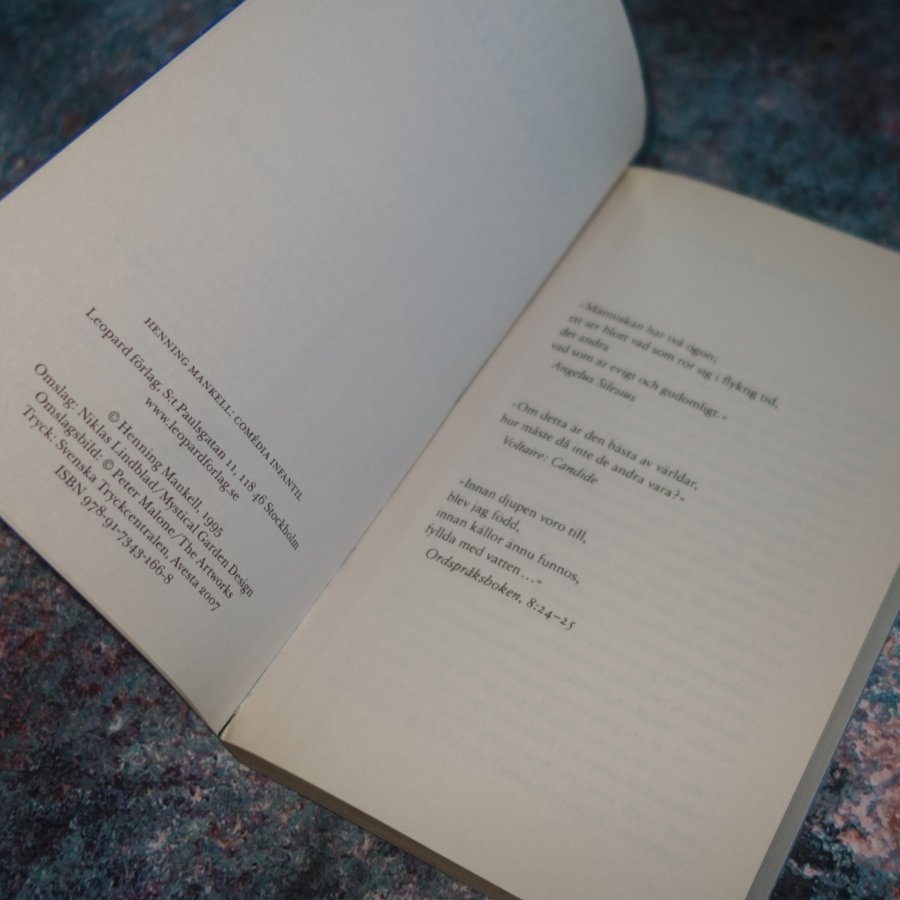 HENNING MANKELL: COMÉDIA INFANTIL
Leopard förlag, S:t Paulsgatan 11, 118 46 Stockholm
www.leopardforlag.se
© Henning Mankell, 1995
Omslag: Niklas Lindblad/Mystical Garden Design
Omslagsbild: © Peter Malone/The Artworks
Tryck: Svenska Tryckcentralen, Avesta 2007
ISBN 978-91-7343-166-8
»Människan har två ögon;
ett ser blott vad som rör sig i flyktig tid,
det andra
vad som är evigt och gudomligt.«
Angelus Silesius
»Om detta är den bästa av världar,
hur måste då inte de andra vara?»
Voltaire: Candide
»Innan djupen voro till,
blev jag född,
innan källor ännu funnos,
fyllda med vatten...«
Ordspråksboken, 8:24–25